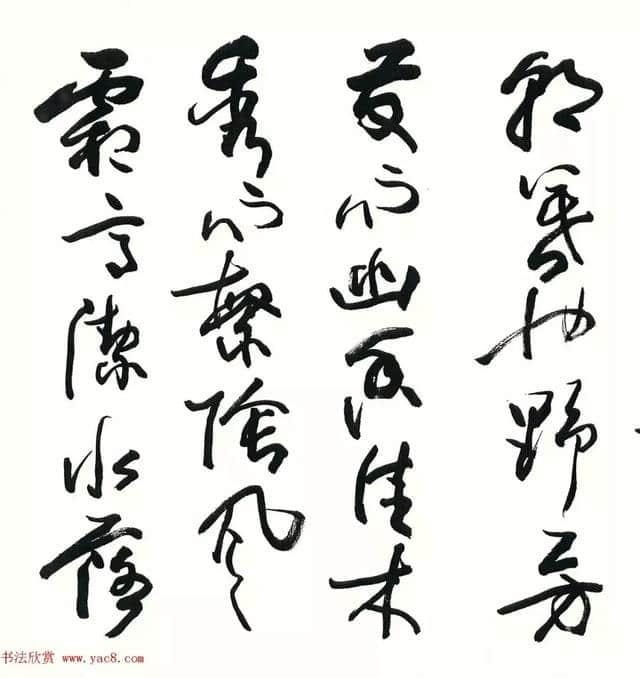 朝暮也野芳
發而幽香佳木
秀而繁陰風
霜高潔水落
书法欣赏 www.yac8.com